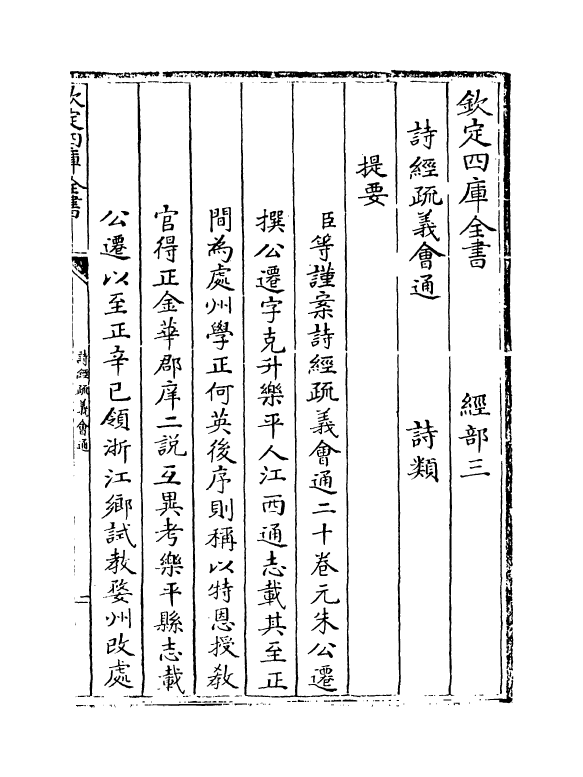 欽定四庫全書 經部三
詩經疏義會通 詩類
提要
臣等謹案詩經疏義會通二十卷元朱公遷
撰公遷字克升樂平人江西通志載其至正
間為處州學正何英後序則稱以特恩授教
官得正金華郡庠二說互異考樂平縣志載
公遷以至正辛巳領浙江鄉試教婺州改處
欽定四庫全書
詩經疏義會通
一